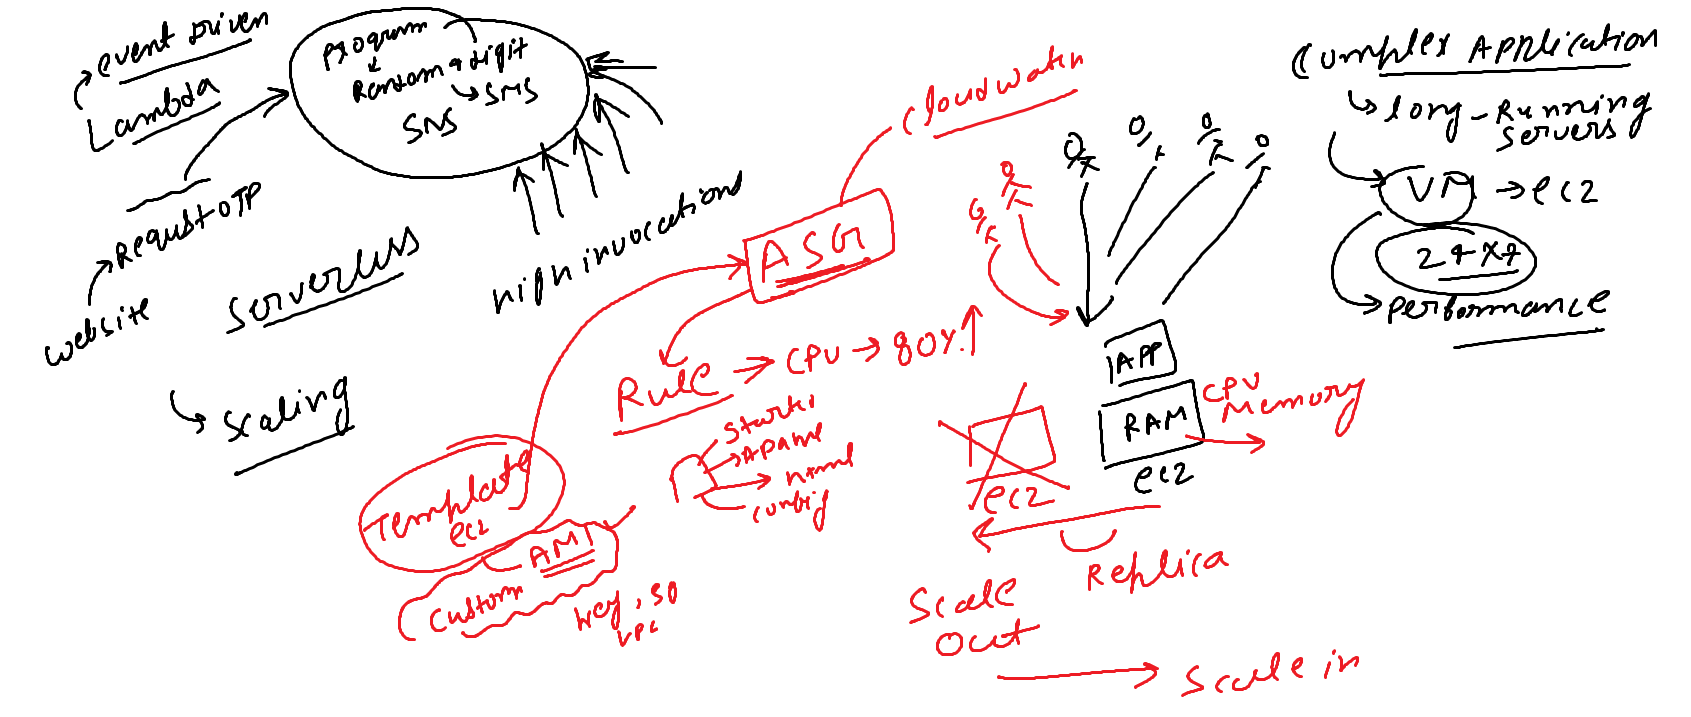 event Driven
Lambda
Program
Random 4 digit
SMS
SNS
Request OTP
website
Serverless
Scaling
high invocations
cloudwatch
ASG
Rule → CPU → 80%↑
Template
ec2
AMI
Custom
key, SG
VPC
config
APP
RAM
CPU
Memory
ec2
ec2
Replica
Scale
Out
Scale in
Complex Application
long-Running
Servers
VM → ec2
24x7
Performance